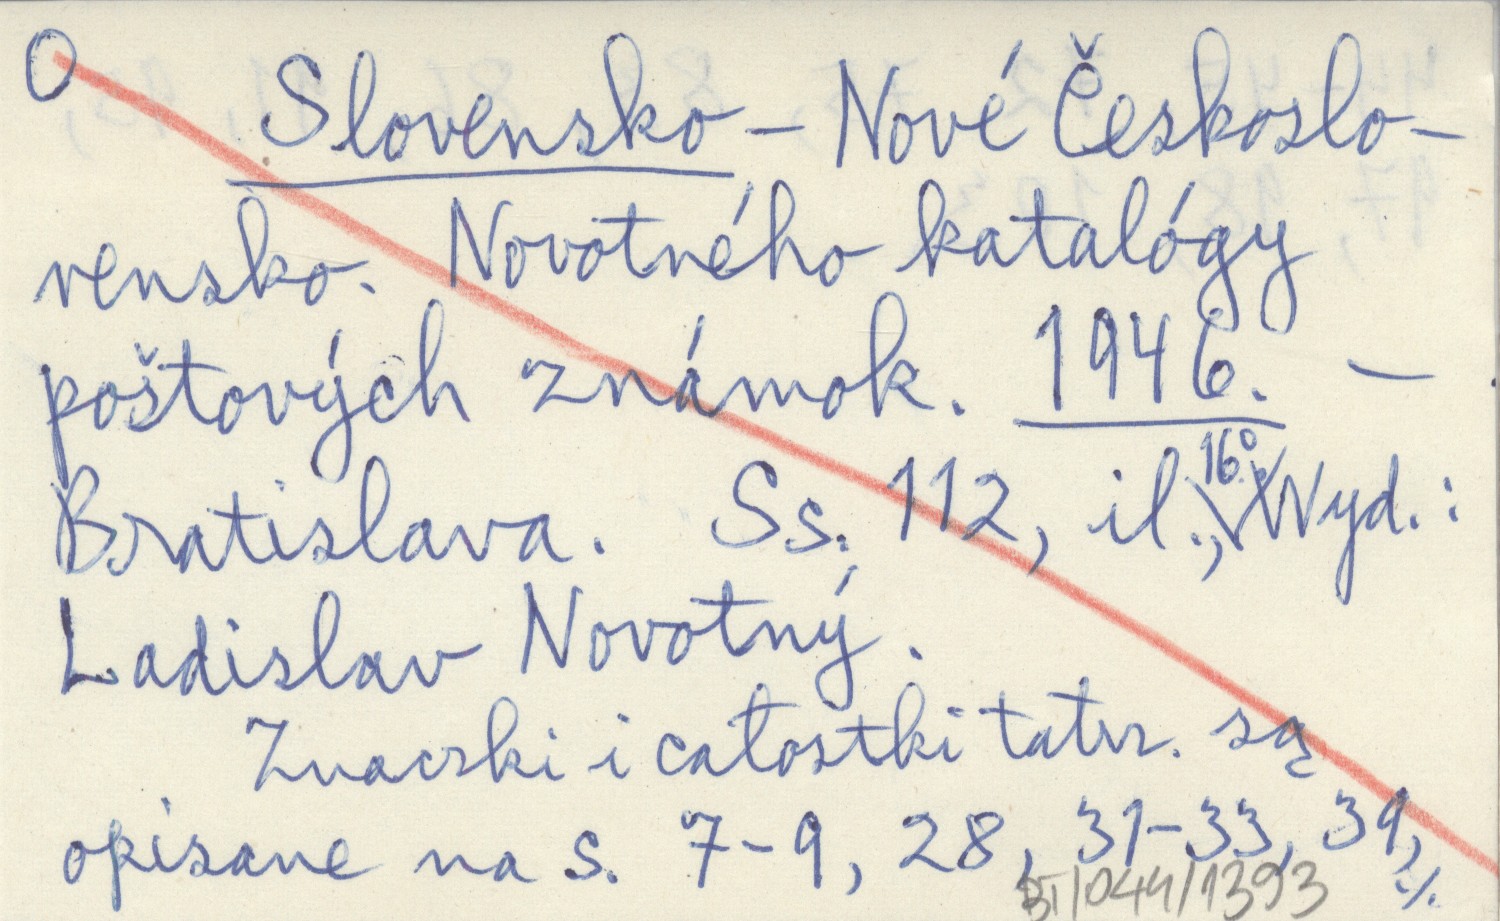 O
Slovensko – Nové Českoslo-
vensko. Novotného katalógy
poštových známok. 1946. –
Bratislava. Ss. 112, il., 16°. Wyd.:
Ladislav Novotný.
Znaczki i całostki tatrz. są
opisane na s. 7-9, 28, 31-33, 39, ./.
BT/044/1393